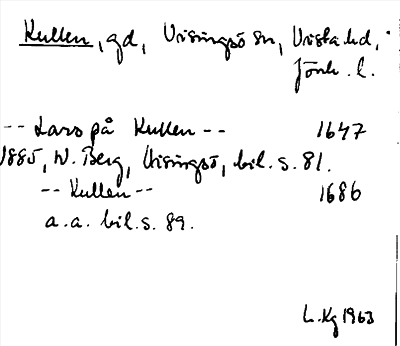 Kullen, gd, Visingsö sn, Vista hd,
Jönk. l.
-- Lars på Kullen -- 1647
1885, W. Berg, Visingsö, bil. s. 81.
-- Kullen -- 1686
a.a. bil. s. 89.
L. Kg 1963